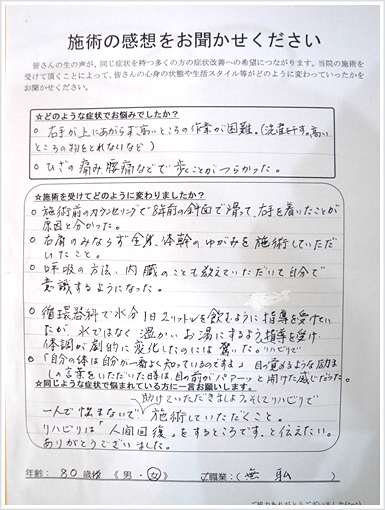 施術の感想をお聞かせください
皆さんの生の声が、同じ症状を持つ多くの方の症状改善への希望につながります。当院の施術を
受けて頂くことによって、皆さんの心身の状態や生活スタイル等がどのように変わっていったかを
お聞かせください。
☆どのような症状でお悩みでしたか?
○ 右手が上にあがらず高いところの作業が困難。(洗濯干す。高い
ところの物をとれないなど)
○ ひざの痛み、腰痛などで歩ことがつらかった。
☆施術を受けてどのように変わりましたか?
○ 施術前のカウンセリングで8年前の斜面で滑って、右手を着いたことが
原因と分かった。
○ 右肩のみならず全身、体幹のゆがみを施術していただ
いたこと。
○ 呼吸の方法、内臓のことも教えていただいて自分で
意識するようになった。
○ 循環器科で水分1日2リットルを飲むように指導を受けてい
たが、水ではなく温かいお湯にするよう指導を受け
体調が劇的に変化したのには驚いた。リハビリで
○「自分の体は自分が一番よく知っているのですよ」目の覚めるような励ま
しの言葉をいただいた時は、目の前がパァーッと開けた感じだった。
☆同じような症状で悩まれている方に一言お願いします。
助けていただきましょう。そしてリハビリで
一人で悩まないで 施術していただくこと。
リハビリは「人間回復」をするところです。と伝えたい。
ありがとうございました。
年齢: 80 歳代 (男・女) ご職業:(無職)
ご協力ありがとうございました